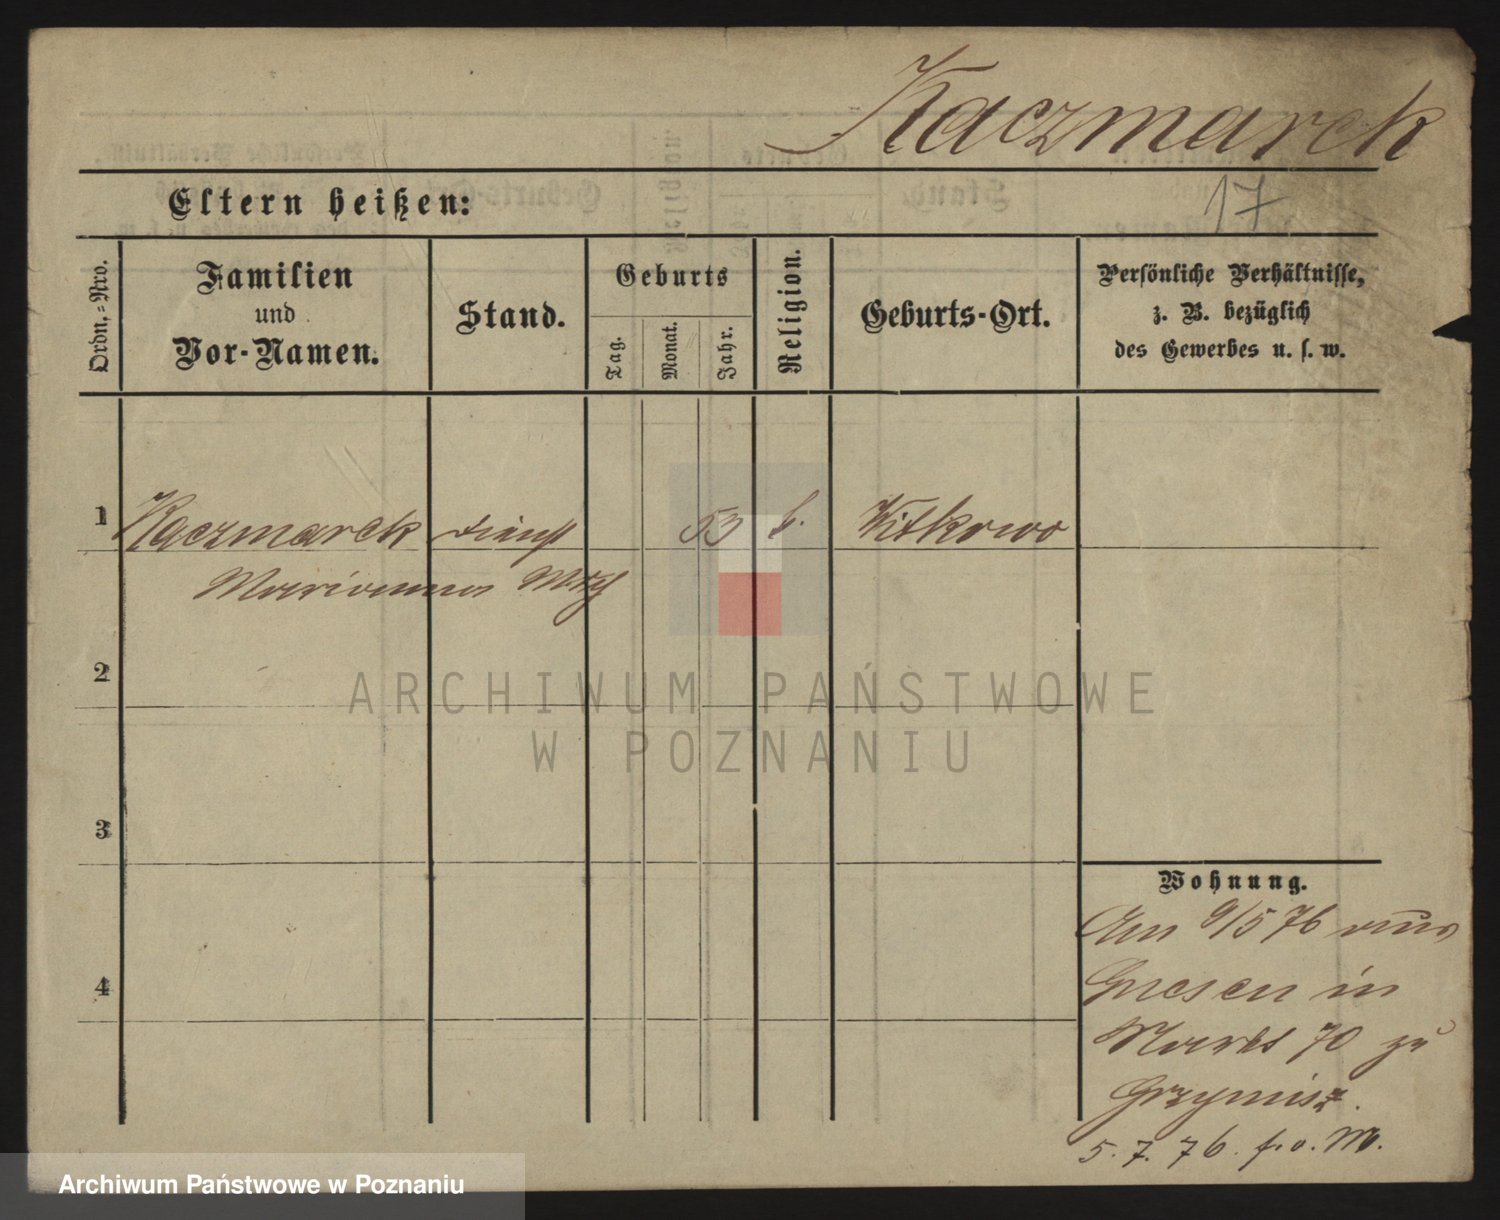 Kaczmarek
17
Eltern heißen:
Ordn.-Nro.
Familien
und
Vor-Namen.
Stand.
Geburts
Tag.
Monat.
Jahr.
Religion.
Geburts-Ort.
Persönliche Verhältnisse,
z. B. bezüglich
des Gewerbes u. s. w.
1 Kaczmarek Dienst 53 k. Witkowo
Marianna
2
3
4
Wohnung.
Am 9/5 76 aus
Gnesen in
Markt 70 zu
5. 7. 76.
ARCHIWUM PAŃSTWOWE
W POZNANIU
Archiwum Państwowe w Poznaniu